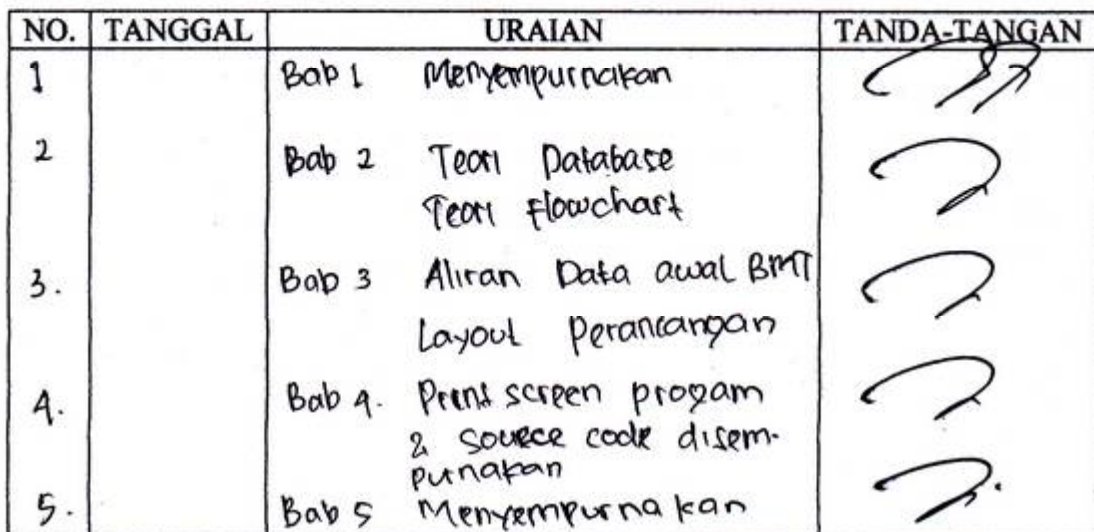 NO. TANGGAL URAIAN TANDA-TANGAN
1 Bab 1 Menyempurnakan
2 Bab 2 Teori Database
Teori Flowchart
3. Bab 3 Aliran Data awal BMT
Layout Perancangan
4. Bab 4. Print screen progam
& source code disem-
purnakan
5. Bab 5 Menyempurnakan